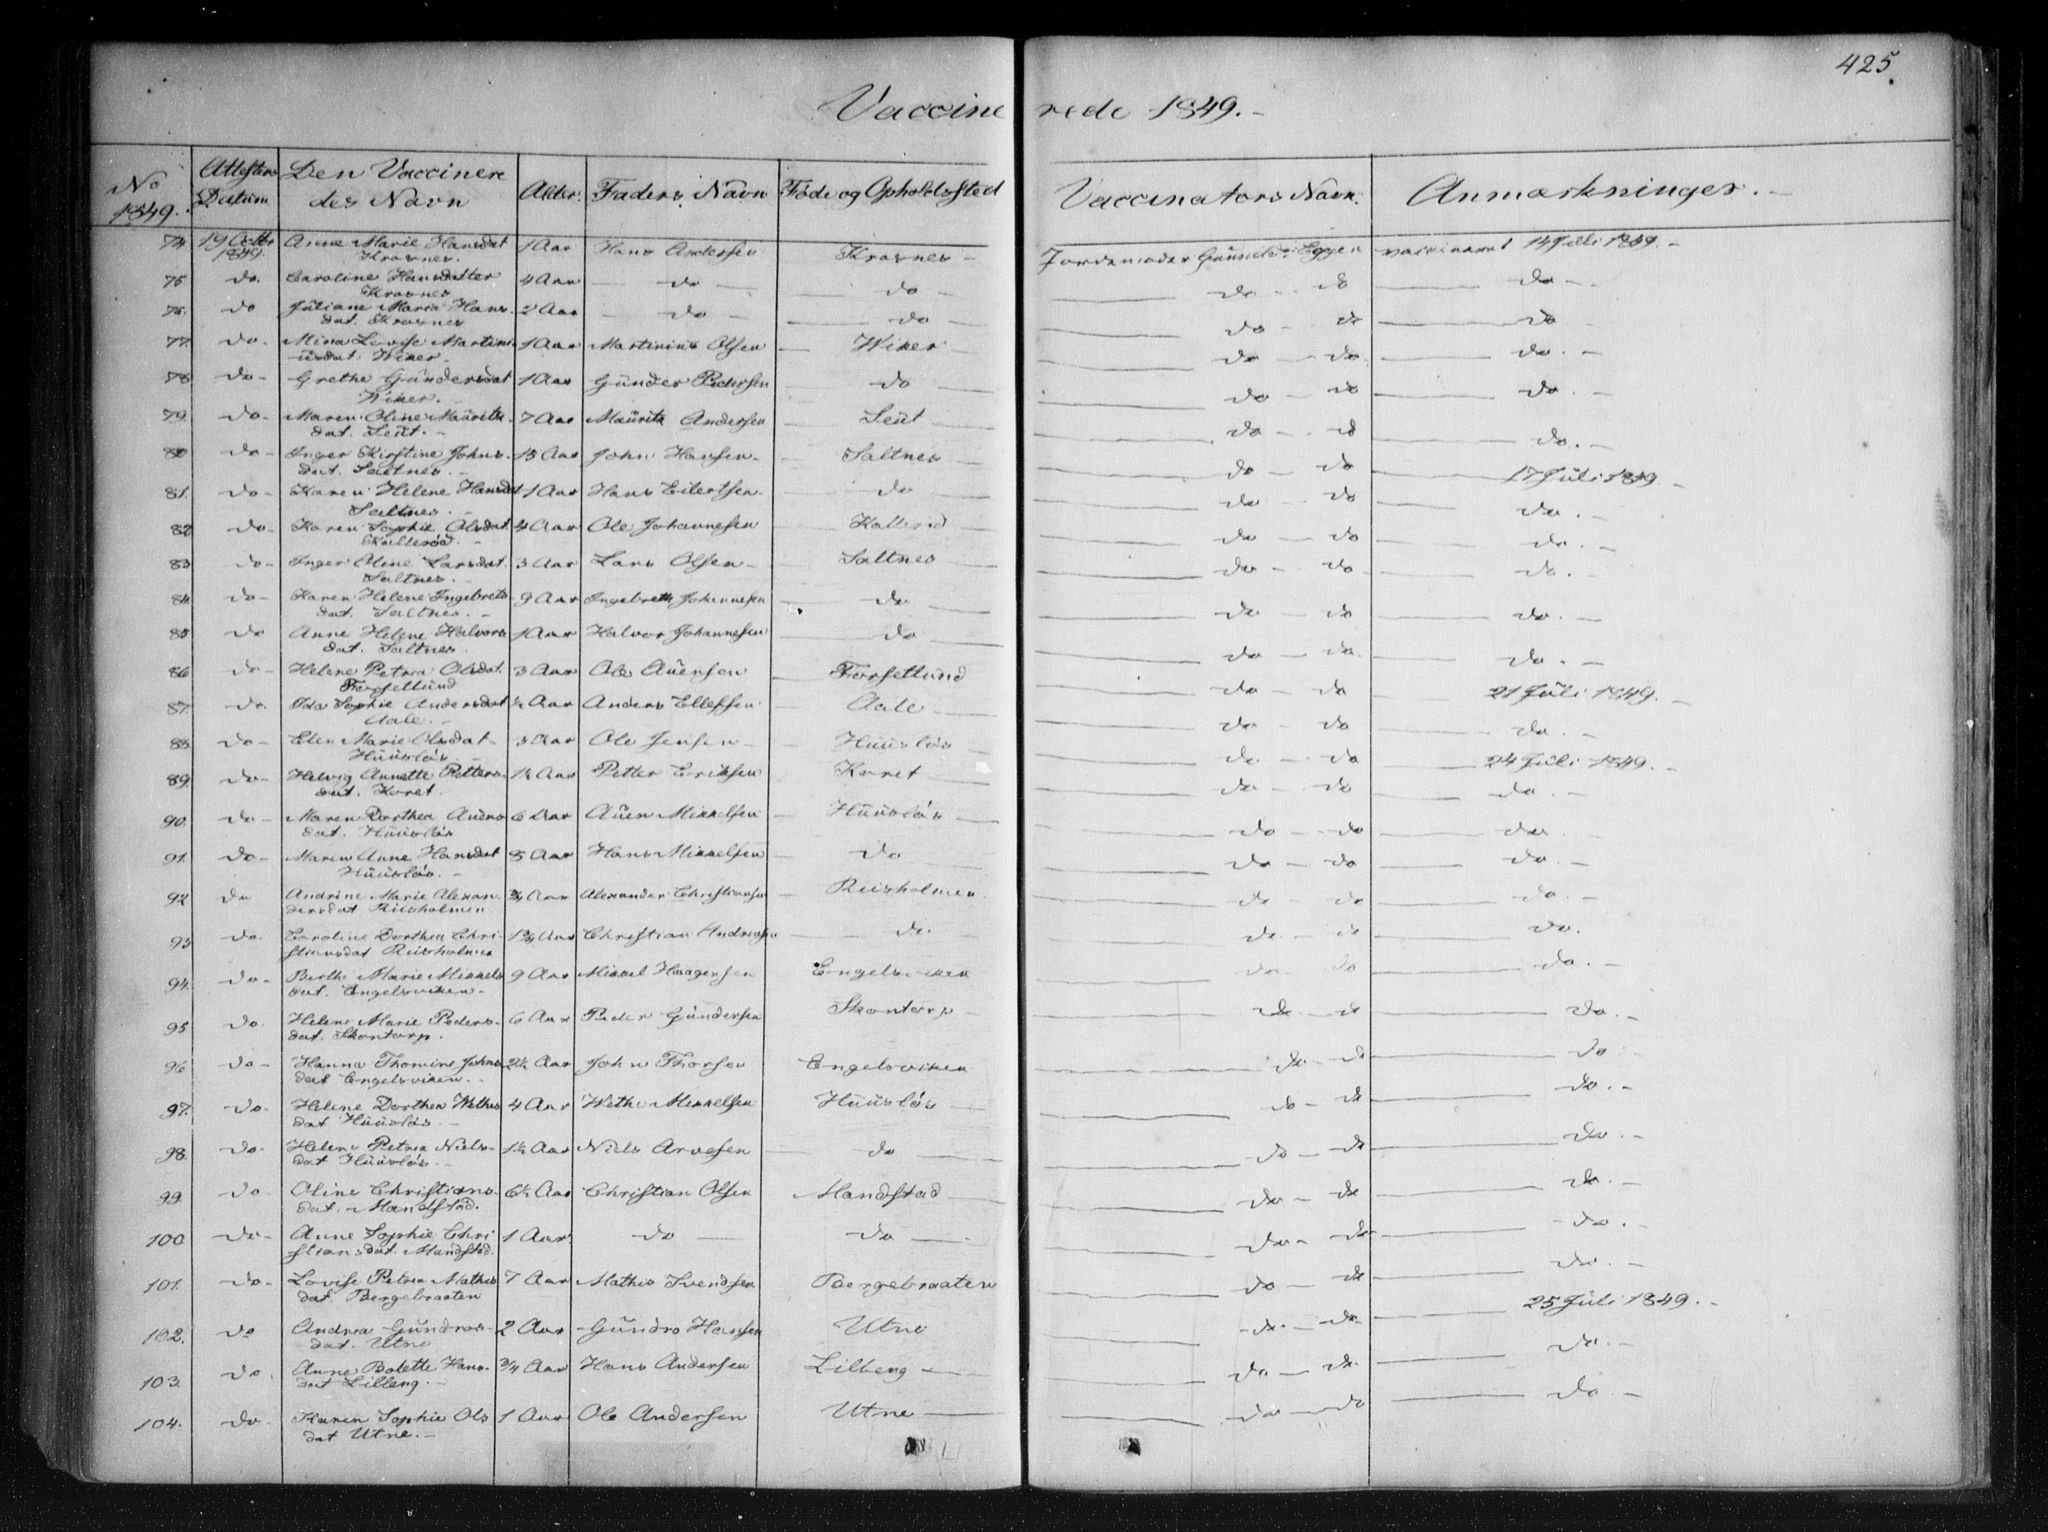 425.
Vaccinerede 1849.-
No 1849. Attestens Datum Den Vaccineredes Navn Alder. Faders Navn Føde og Opholdssted Vaccinators Navn. Anmærkninger.-
74 19 1849. Anne Marie Hansdat Krosnes. 1 Aar Hans Andersen Krosnes - Jordemoder Eggen vaccineret 14 Juli 1849.-
75 do. Caroline Hansdatter Krosnes 4 Aar do do do - do do -
76. do Juliane Marie Hansdat. Krosnes 2 Aar do do do - do do
77. do. Mina Lovise Martiniusdat. Wiker. 1 Aar Martinius Olsen Wiker do - do. do. -
78 do - Grethe Gündersdat Wiker. 1 Aar Günder Pedersen do do - do do. -
79. do - Maren Oline Mauritzdat. Leüt. - 7 Aar Mauritz Andersen Leüt do - do do. -
80 do - Inger Kirstine Johnsdat. Saltnes. - 15 Aar John Hansen - Saltnes do - do 17 Juli 1849 -
81. do - Karen Helene Hansdat. Saltnes. - 1 Aar Hans Eilertsen. do do - do do. -
82 do - Karen Sophie Olsdat. Kallerød. - 4 Aar Ole Johannesen Kallerød do - do do. -
83 do - Inger Oline Larsdat. Saltnes. - 3 Aar Lars Olsen - Saltnes do - do do. -
84 do - Karen Helene Ingebretsdat. Saltnes. - 9 Aar Ingebreth Johannesen do do - do do. -
85 do Anne Helene Halvorsdat. Saltnes. 1 Aar Halvor Johannesen do do - do. do. -
86 do - Helene Petrea Olsdat. Forsetlund 3 Aar Ole Auensen Forsetlund do - do 21 Juli 1849. -
87. do. Ida Sophie Andersdat Aale. - ½ Aar Anders Ellefsen Aale do - do do. -
88 do - Elen Marie Olsdat - Hüusløs - 3 Aar Ole Jensen - Hüusløs do - do 24 Juli 1849. -
89. do - Helvig Annette Pettersdat. Koret. 1½ Aar Petter Eriksen Koret do - do do. -
90. do - Maren Dorthea Auensdat. Hüusløs 6 Aar Auen Mikkelsen Hüusløs do - do do. -
91. do - Maren Anne Hansdat Hüusløs. - 8 Aar Hans Mikkelsen do do - do do. -
92 do Andrine Marie Alexandersdat Riisholmen ¾ Aar Alexander Christiansen Riisholmen do - do do. -
93 do. Caroline Dorthea Christiansdat Riisholmen 1¾ Aar Christian Andreasen do do - do do.
94. do - Berthe Marie Mikkelsdat. Engelsviken - 9 Aar Mikkel Haagensen Engelsviken do - do do. -
95 do. Helene Marie Pedersdat. Skontorp. 6 Aar Peder Gündersen Skontorp do - do do. -
96 do - Hanna Thomine Johnsdat Engelsviken. - 2½ Aar John Thorsen Engelsviken do - do do
97. do. Helene Dorthea Wethesdat Hüusløs. - 4 Aar Wethe Mikkelsen Hüusløs do - do do. -
98. do. Helene Petrea Nielsdat Hüusløs. - 1½ Aar Niels Arvesen do do - do do. -
99. do. Oline Christiansdat. Mandstad. 6½ Aar Christian Olsen Mandstad do - do do. -
100 do - Anne Sophie Christiansdat. Mandstad. 1 Aar do do do - do do. -
101. do - Lovise Petrea Mathisdat. Bergebraaten 7 Aar Mathis Svendsen Bergebraaten do - do do. -
102. do Andrea Gundrosdat. Utne 2 Aar Gundro Hansen Utne do - do. 25 Juli 1849. -
103. do. Anne Bolette Hansdat Lilleng. - ¾ Aar Hans Andersen Lilleng do - do. do. -
104. do. Karen Sophie Olsdat Utne. - 1 Aar Ole Andersen Utne do - do do. -